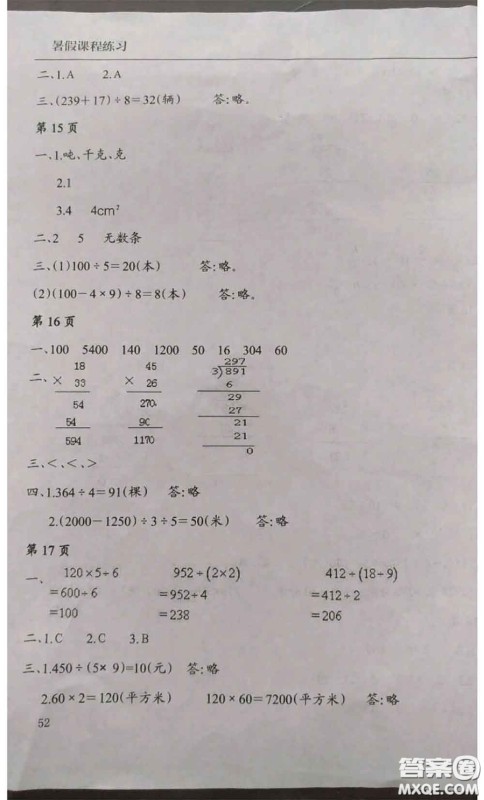 暑假课程练习
二、1.A 2.A
三、(239+17)÷8=32(辆) 答:略。
第15页
一、1.吨、千克、克
2.1
3.4 4cm²
二、2 5 无数条
三、(1)100÷5=20(本) 答:略。
(2)(100-4×9)÷8=8(本) 答:略。
第16页
一、100 5400 140 1200 50 16 304 60
二、 18 45 297
× 33 × 26 3)891
54 270 6
54 90 29
594 1170 27
21
21
0
三、<、<、>
四、1.364÷4=91(棵) 答:略
2.(2000-1250)÷3÷5=50(米) 答:略
第17页
一、 120×5÷6 952÷(2×2) 412÷(18÷9)
=600÷6 =952÷4 =412÷2
=100 =238 =206
二、1.C 2.C 3.B
三、1.450÷(5×9)=10(元) 答:略
2.60×2=120(平方米) 120×60=7200(平方米) 答:略
52
答案圈
MXQE.COM